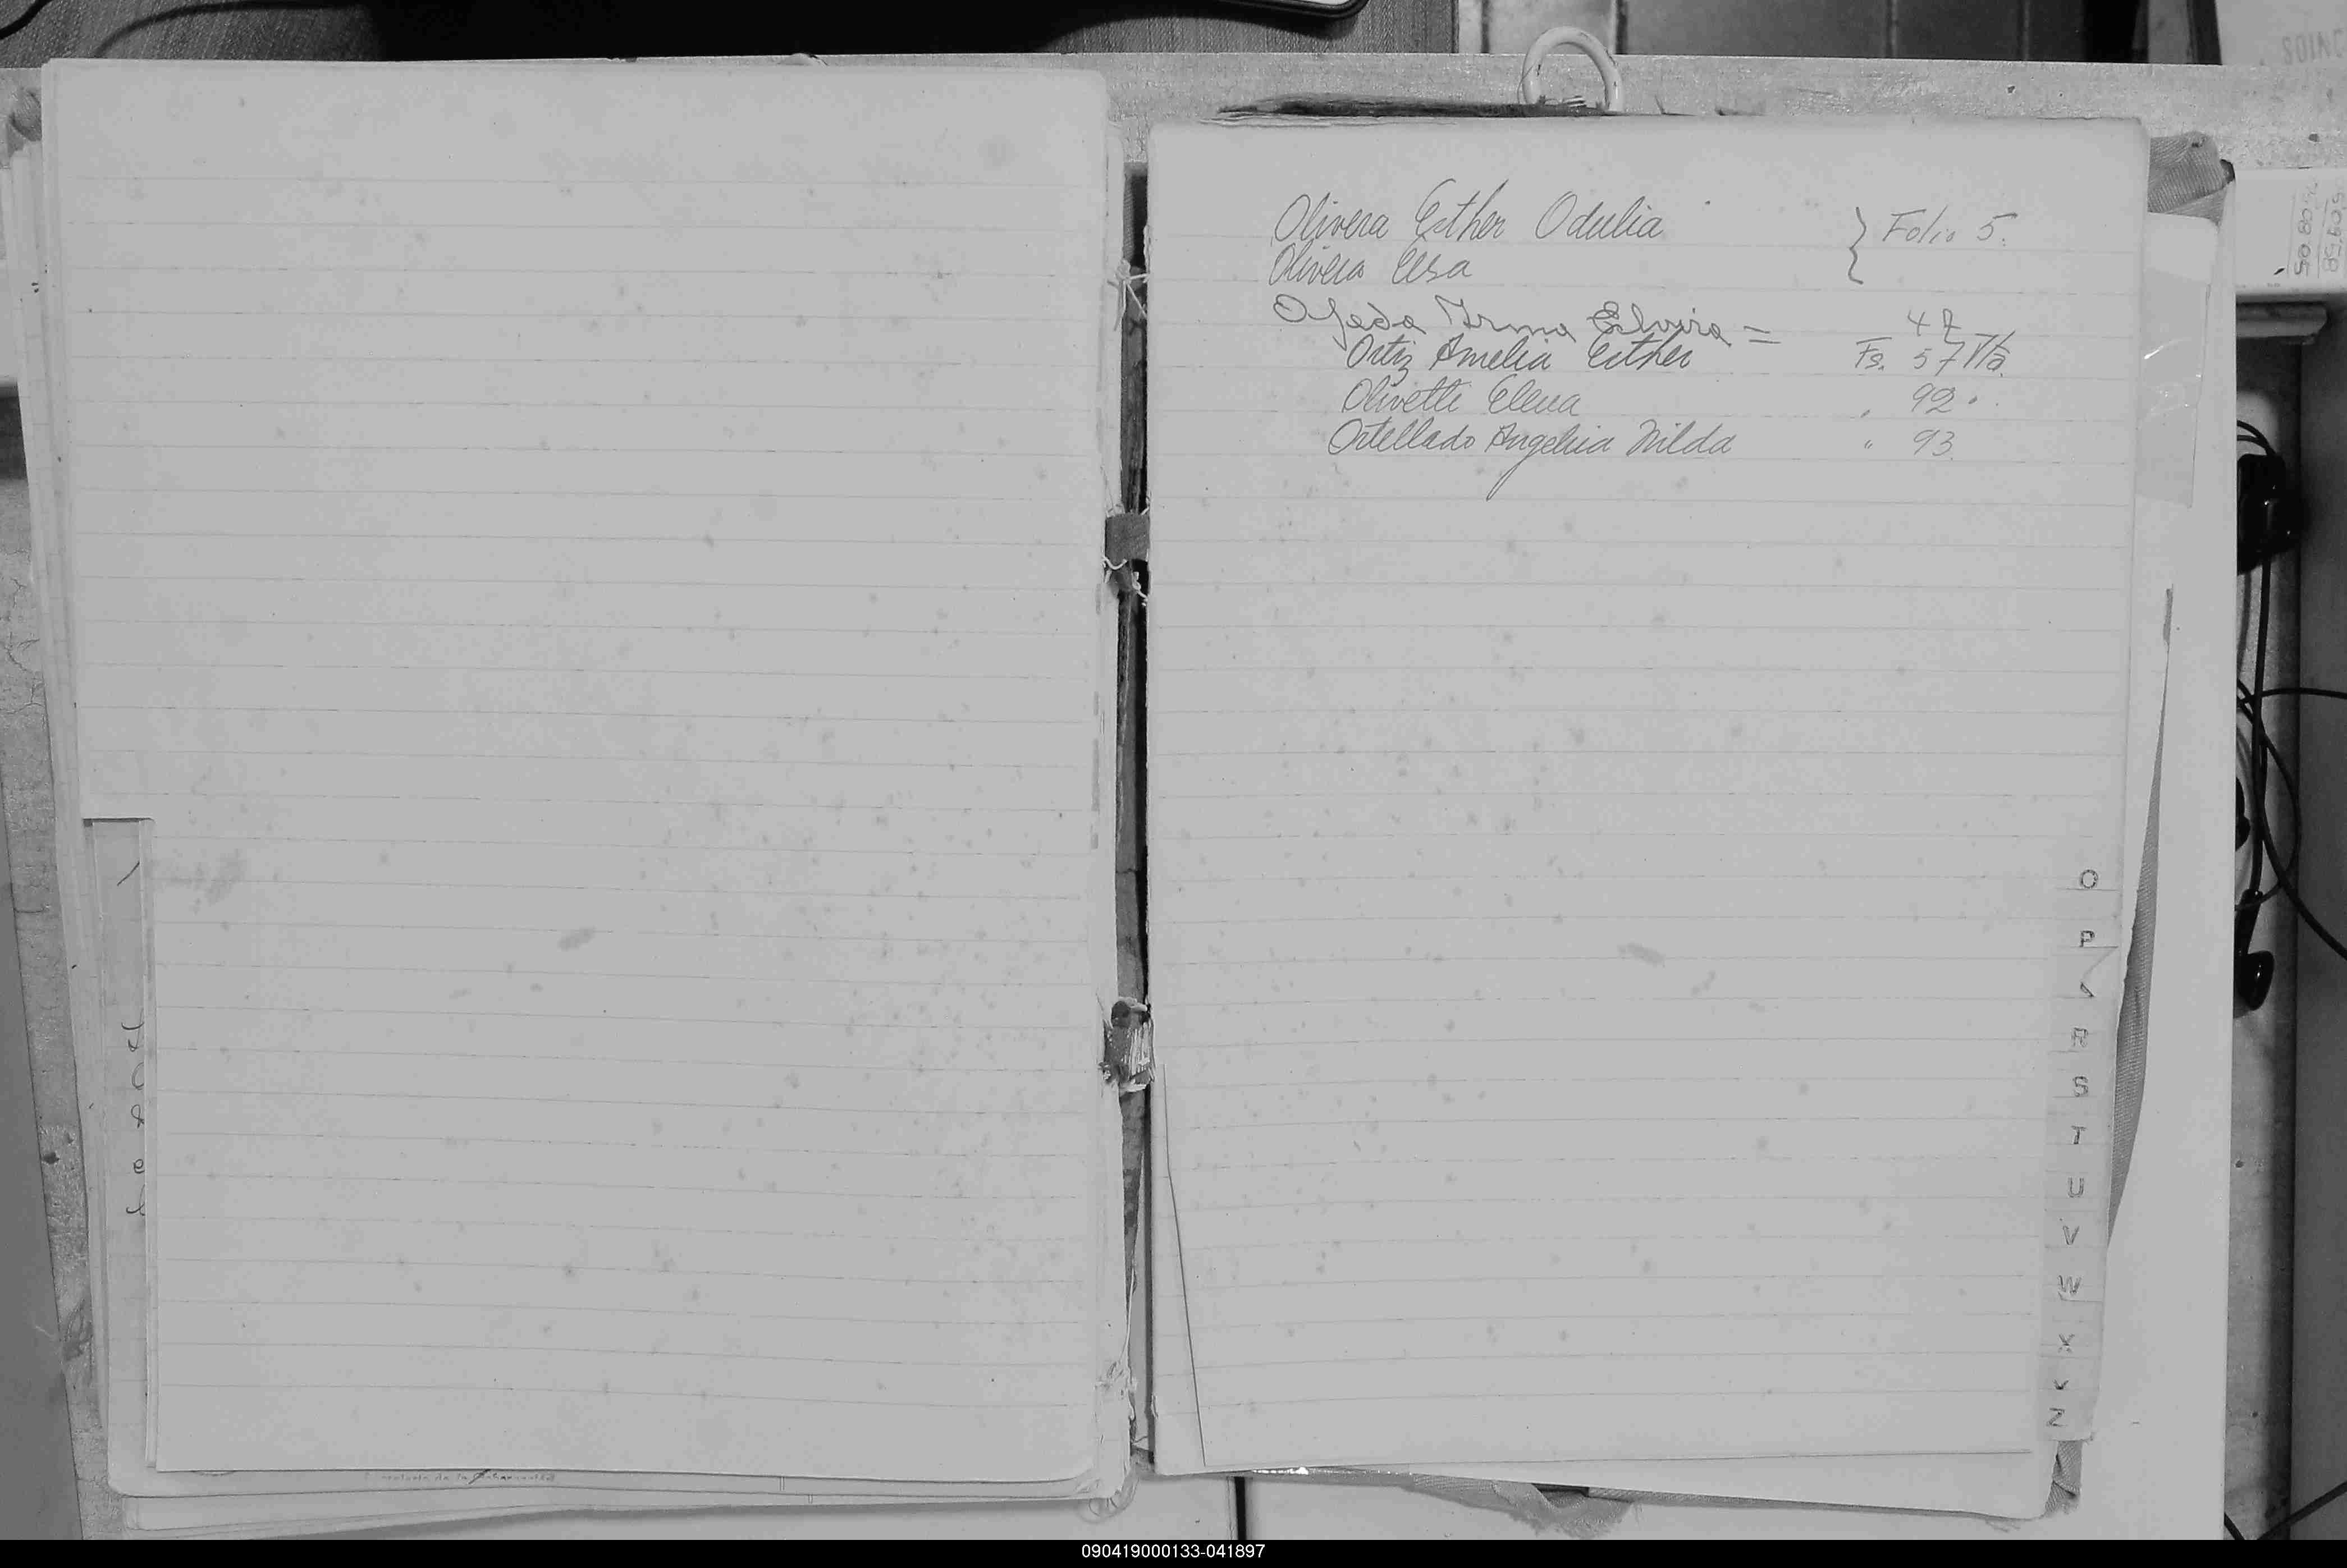 Olivera Esther Odulia } Folio 5.
Olivera Elsa
Ojeda Irma Elvira = 47
Ortiz Amelia Esther Fs. 57 Vta.
Olivetti Elena " 92 "
Ortellado Angelica Nilda " 93
O
P
R
S
T
U
V
W
X
Z
090419000133-041897